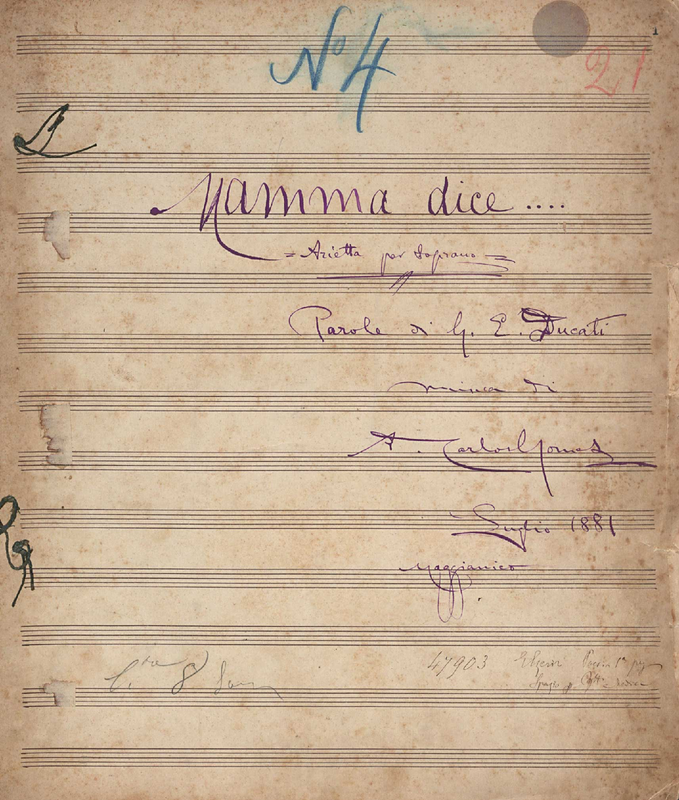 1
Nº 4
21
Mamma dice ....
= Arietta per Soprano =
Parole di G. E. Ducati
musica di
A. Carlos Gomes
Luglio 1881
Maggianico
47903